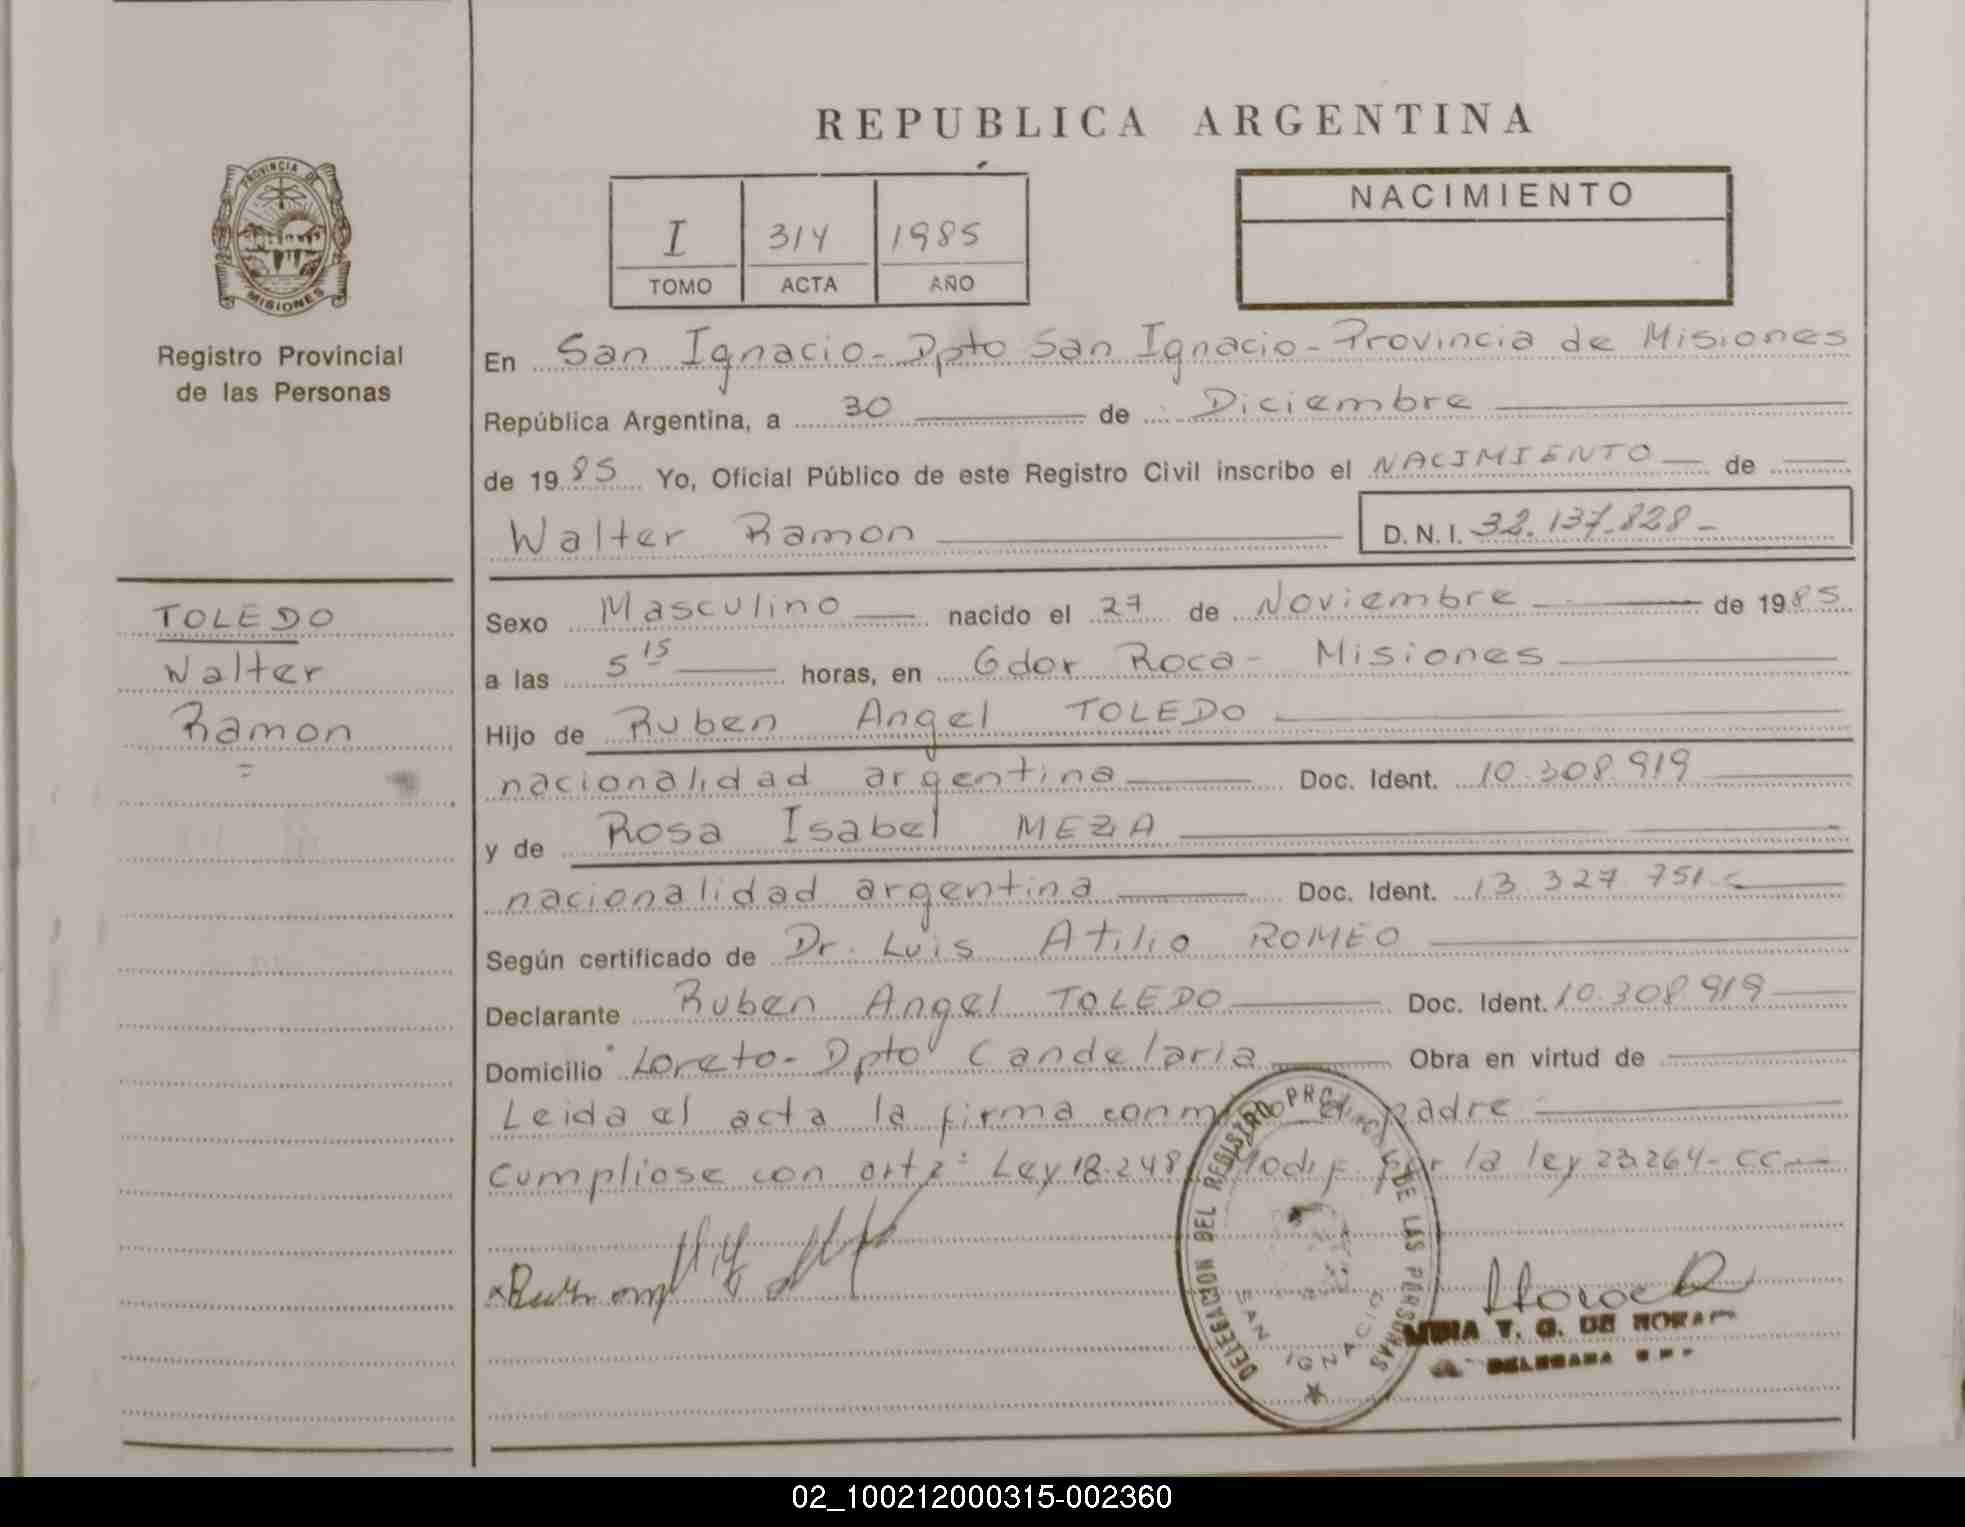 REPUBLICA ARGENTINA
PROVINCIA DE
MISIONES
Registro Provincial
de las Personas
I 314 1985
TOMO ACTA AÑO
NACIMIENTO
En San Ignacio - Dpto San Ignacio - Provincia de Misiones
República Argentina, a 30 de Diciembre
de 1985 Yo, Oficial Público de este Registro Civil inscribo el NACIMIENTO de
Walter Ramon
D. N. I. 32.137.828-
TOLEDO
Walter
Ramon
Sexo Masculino nacido el 27 de Noviembre de 1985
a las 5 15 horas, en Gdor Roca - Misiones
Hijo de Ruben Angel TOLEDO
nacionalidad argentina Doc. Ident. 10.308.919
y de Rosa Isabel MEZA
nacionalidad argentina Doc. Ident. 13.327.751
Según certificado de Dr. Luis Atilio ROMEO
Declarante Ruben Angel TOLEDO Doc. Ident. 10.308.919
Domicilio Loreto - Dpto Candelaria Obra en virtud de
Leida el acta la firma conmigo el padre
Cumpliose con art 2: Ley 18.248 Modif. por la ley 23.264 - CC
DELEGACION DEL REGISTRO DE LAS PERSONAS
SAN IGNACIO
T. G. DE
DELEGADA
02_100212000315-002360